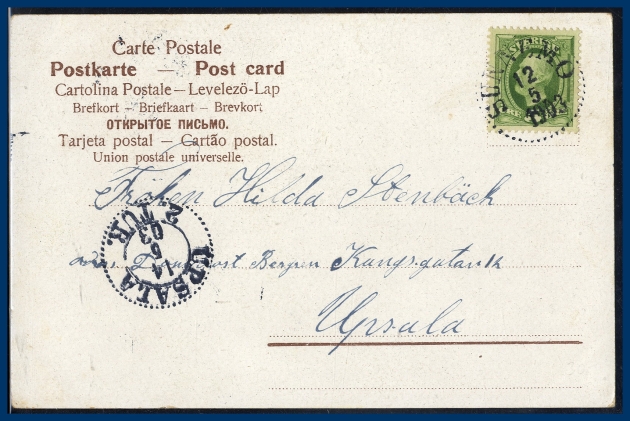 Carte Postale
Postkarte — Post card
Cartolina Postale — Levelezö-Lap
Brefkort — Briefkaart — Brevkort
ОТКРЫТОЕ ПИСЬМО.
Tarjeta postal — Cartão postal.
Union postale universelle.
12
5
1903
Fröken Hilda Stenbäck
Bergen Kungsgatan
Upsala
UPSALA
2. TUR.
14
5
03